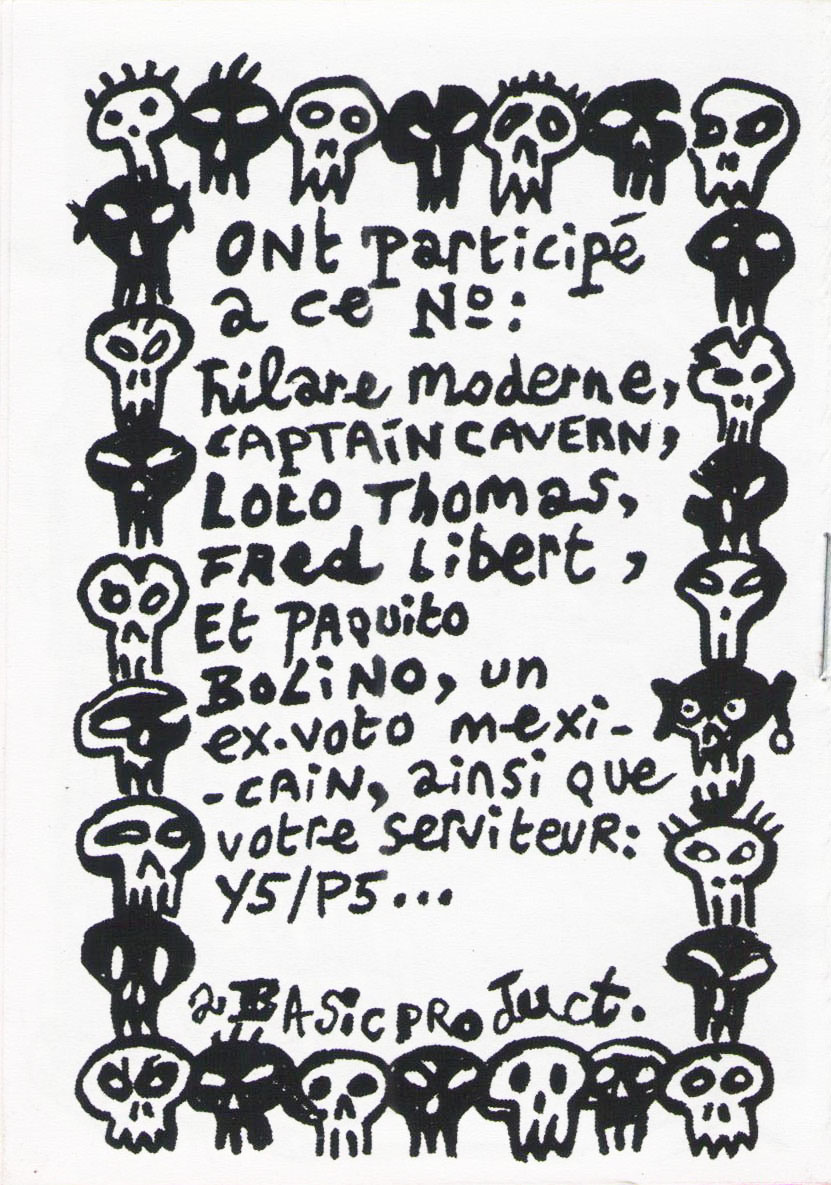 ONt participé
a ce Nº:
hilare moderne,
CAPTAIN CAVERN,
Loto Thomas,
FRed Libert,
Et PAQuito
BoLiNO, un
ex.voto mexi-
-CAiN, ainsi que
votre serviteuR:
Y5/P5...
a BASiCPRoduct.